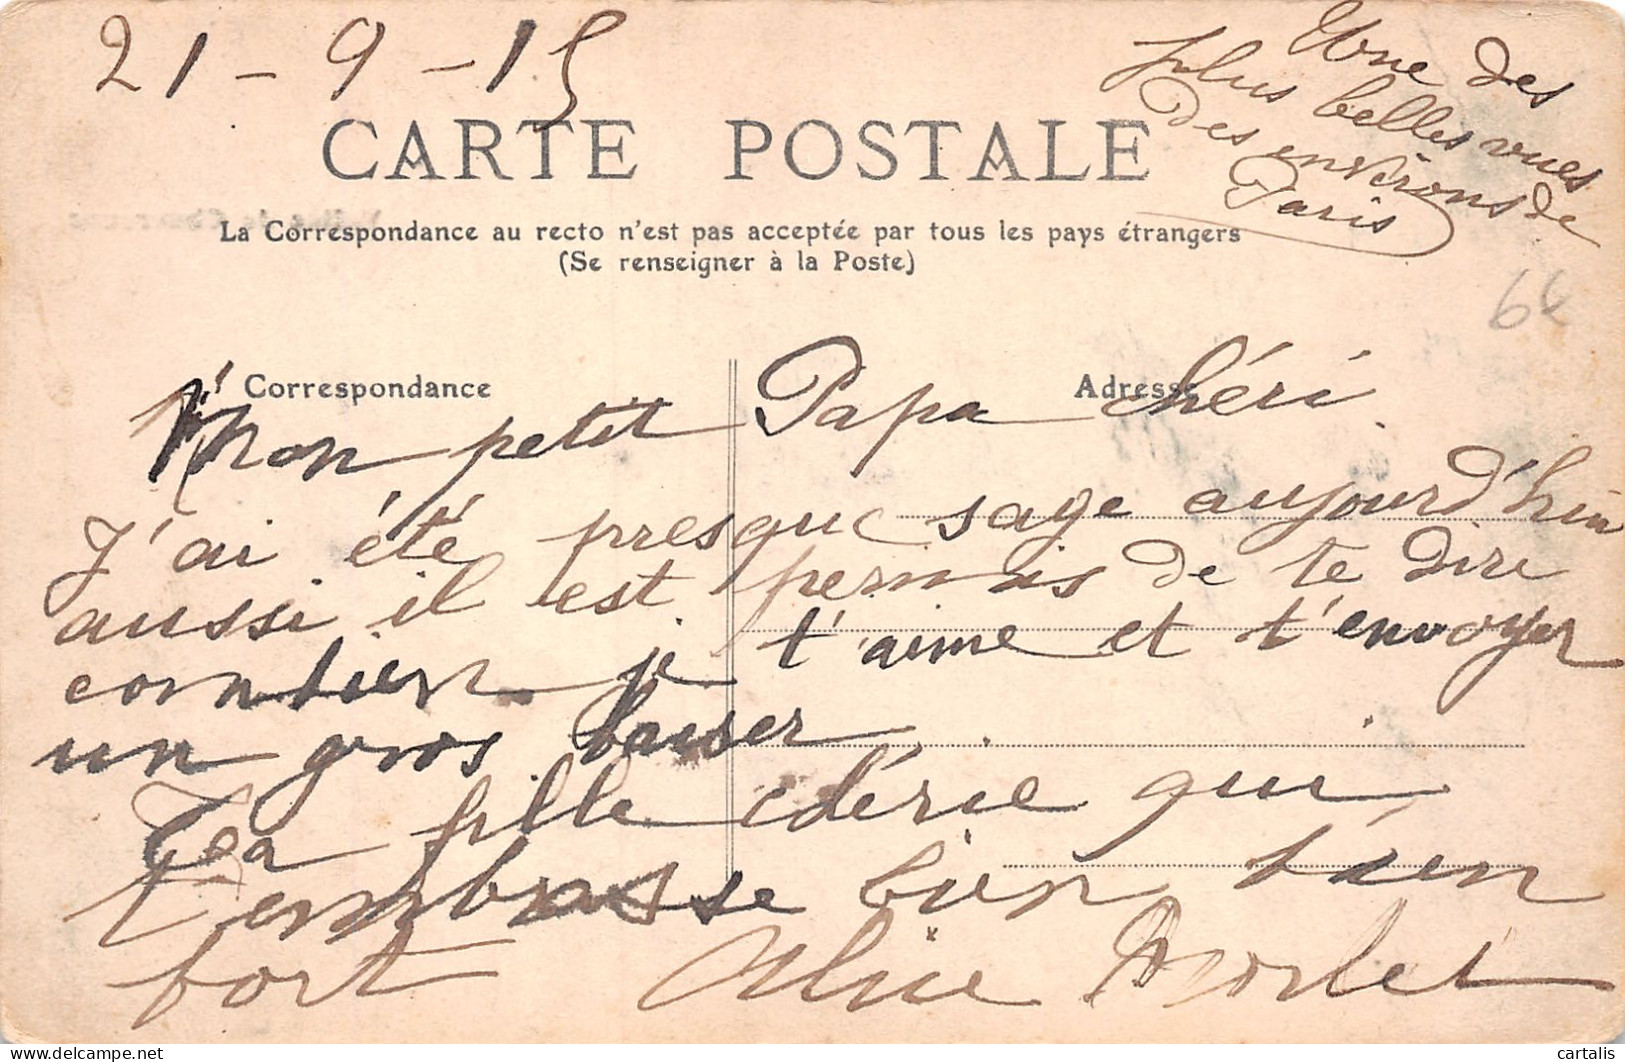 21-9-15
Une des
plus belles vues
des environs de
Paris
CARTE POSTALE
La Correspondance au recto n'est pas acceptée par tous les pays étrangers
(Se renseigner à la Poste)
Correspondance
Adresse
Mon petit Papa chéri
J'ai été presque sage aujourd'hui
aussi il est permis de te dire
combien je t'aime et t'envoyer
un gros baiser
Ta fille chérie qui
t'embrasse bien bien
fort Alice Morlet
cartalis